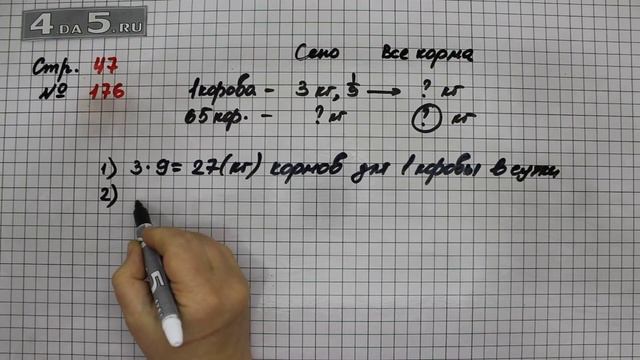 4 DA 5.RU
Стр. 47
№ 176
Сено Все корма
1 корова - 3 кг, 1/9 → ? кг
65 кор. - ? кг ? кг
1) 3 · 9 = 27 (кг) кормов для 1 коровы в сутки
2)